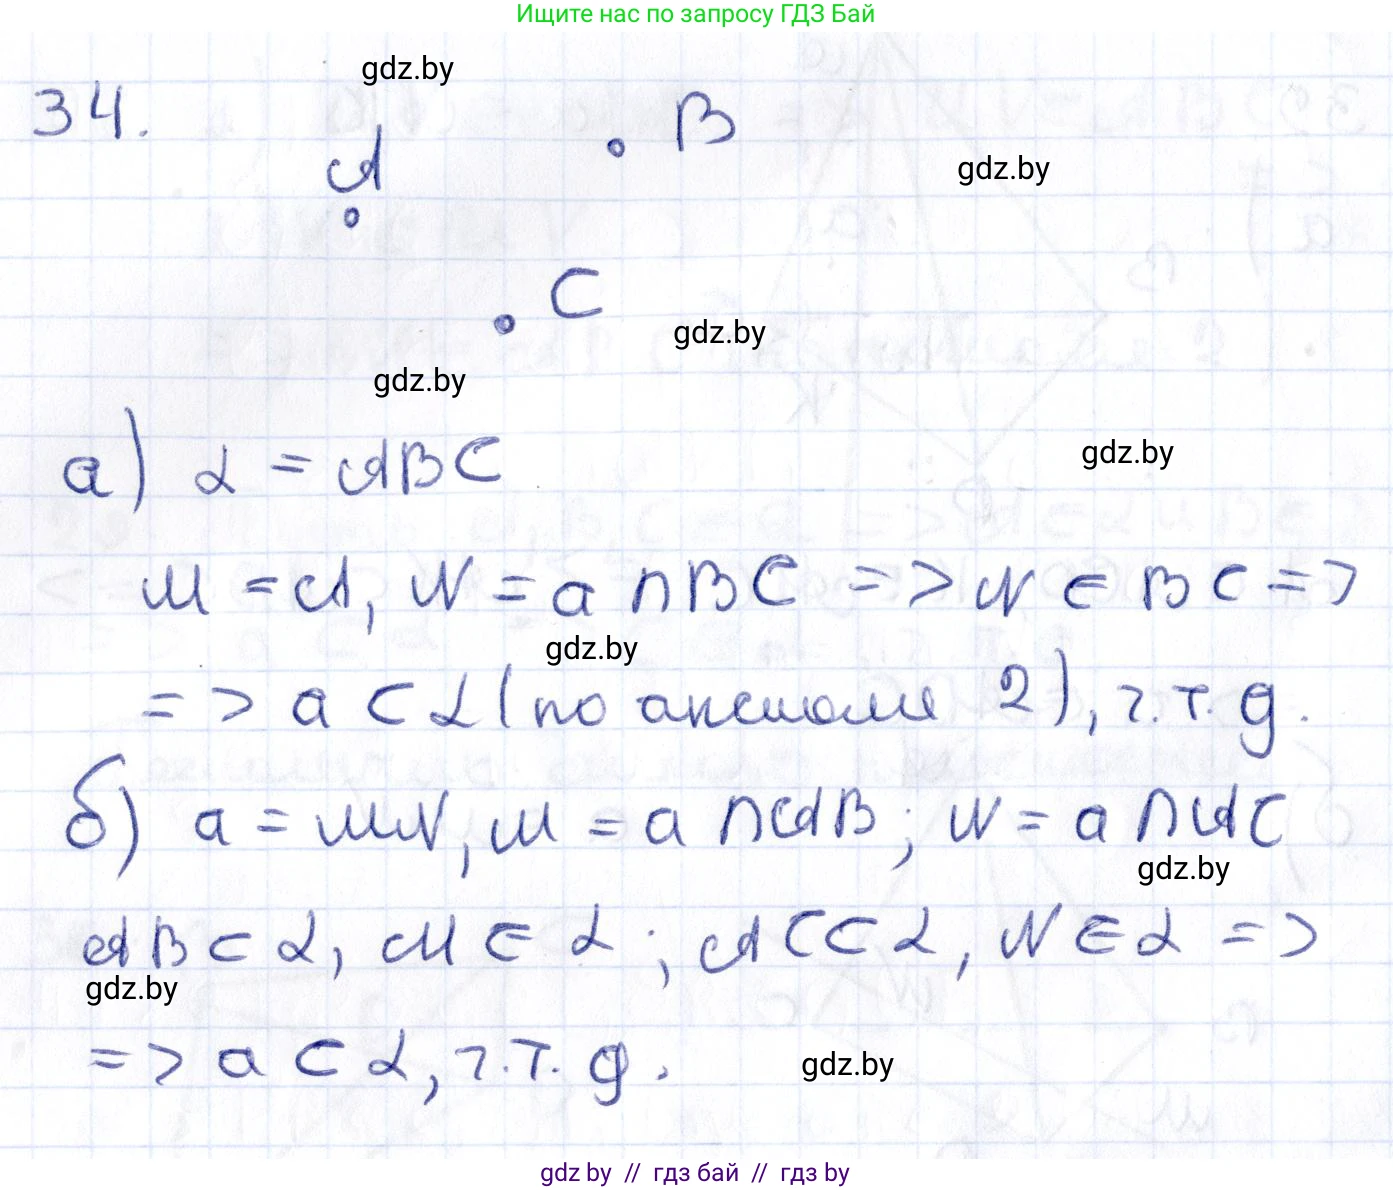 Ищите нас по запросу ГДЗ Бай
gdz.by
34.
A
B
gdz.by
C
gdz.by
gdz.by
а) α = ABC
gdz.by
M = A, N = a ∩ BC => N ∈ BC =>
gdz.by
=> a ⊂ α (по аксиоме 2), ч.т.д.
б) a = MN, M = a ∩ AB; N = a ∩ AC
gdz.by
AB ⊂ α, M ∈ α; AC ⊂ α, N ∈ α =>
gdz.by
=> a ⊂ α, ч.т.д.
gdz.by
gdz by // гдз бай // гдз by